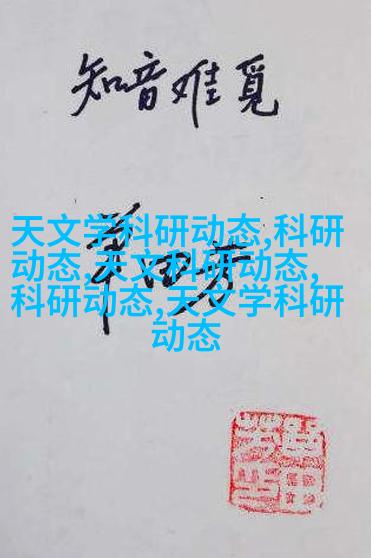 知音难觅
天文学科研动态,科研
动态,天文科研动态,
科研动态,天文学科研
动态
单田芳